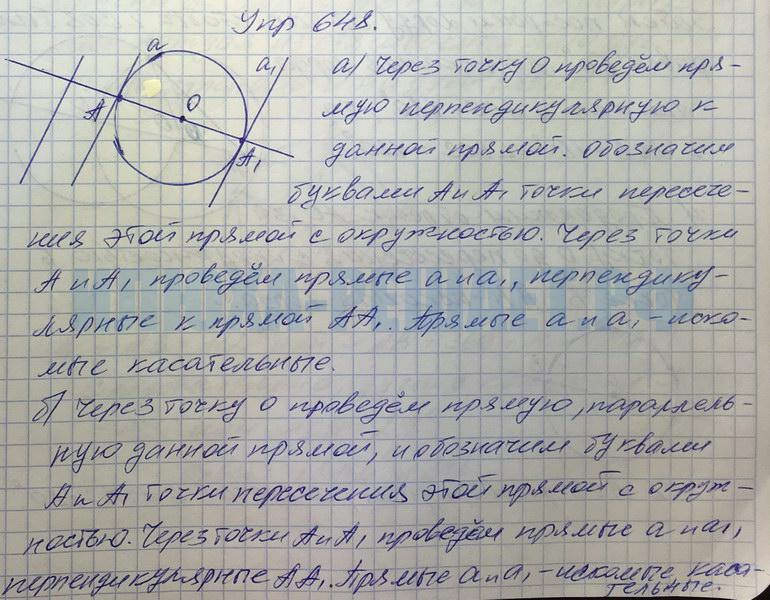 Упр 648.
a
a₁
O
A
A₁
а) Через точку О проведём пря-
мую перпендикулярную к
данной прямой. Обозначим
буквами А и А₁ точки пересече-
ния этой прямой с окружностью. Через точки
А и А₁ проведём прямые а и а₁, перпендику-
лярные к прямой АА₁. Прямые а и а₁ - иско-
мые касательные.
б) Через точку О проведём прямую, параллель-
ную данной прямой, и обозначим буквами
А и А₁ точки пересечения этой прямой с окруж-
ностью. Через точки А и А₁ проведём прямые а и а₁,
перпендикулярные АА₁. Прямые а и а₁ - искомые каса-
тельные.